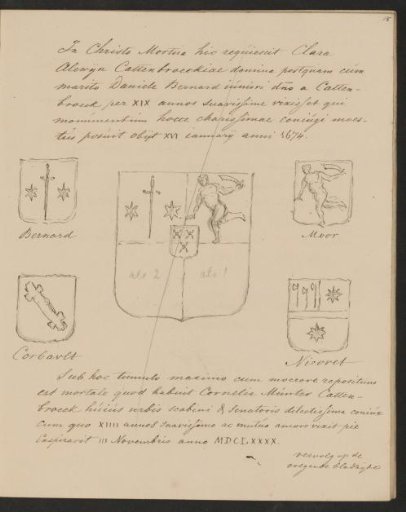 15
In Christo Mortua hic requiescit Clara
Alewijn Callenbroeckiae domina postquam cum
marito Daniele Bernard iuniori dño a Callen-
broeck per XIX annos suavissime vixisset qui
monumentum hocce charissimae coniugi moes-
tus posuit obijt XVI ianuarij anni 1674.
Bernard
Moor
als 2
als 1
Corbault
Nicovet
Sub hoc tumulo maximo cum moerore repositum
est mortale quod habuit Cornelia Munter Callen-
broeck huius urbis scabini & Senatoris dilectissima coniux
cum quo XIIII annos suavissime ac mutuo amore vixit pie
Exspiravit III Novembris anno MDCLXXXX.
vervolg op de
volgende bladzijde